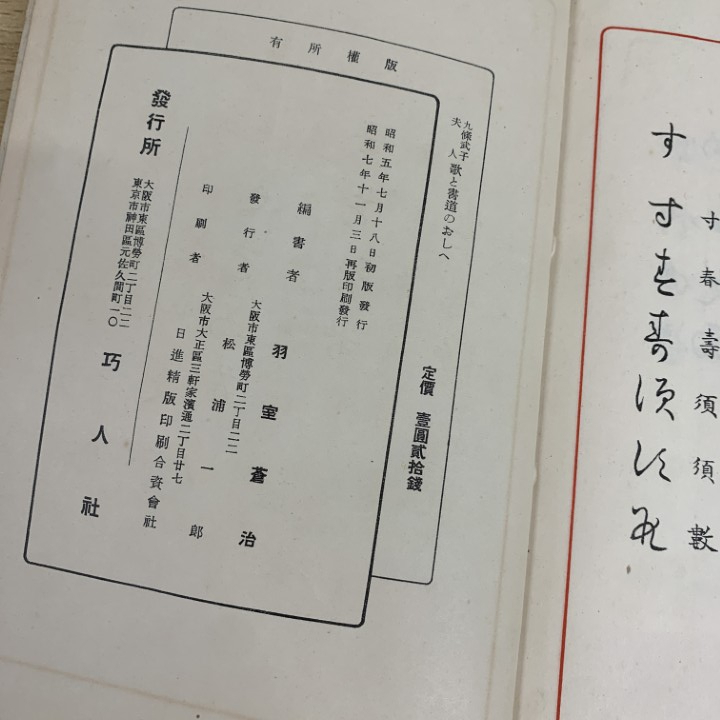 寸春壽須須數
す
版權所有
九條武子夫人 歌と書道のおしへ
定價 壹圓貳拾錢
昭和五年七月十八日初版發行
昭和七年十一月三日再版印刷發行
編書者 羽室蒼治
發行者 大阪市東區博勞町二丁目二二
松浦一郎
印刷者 大阪市大正區三軒家濱通二丁目廿七
日進精版印刷合資會社
發行所 大阪市東區博勞町二丁目二二
東京市神田區元佐久間町一〇
巧人社